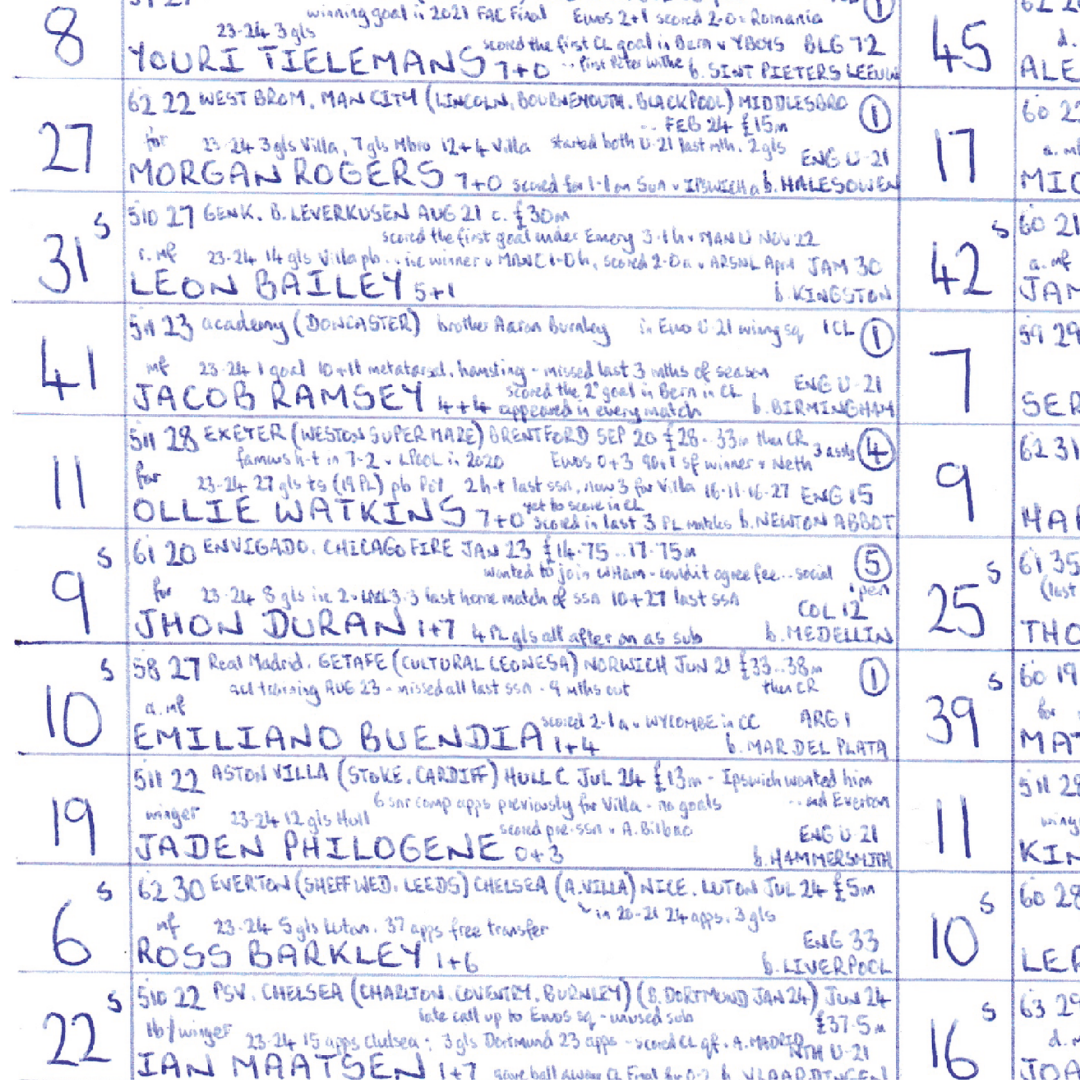 8
winning goal in 2021 FAC Final Euros 2+1 scored 2-0 v Romania
1
23-24 3 gls
scored the first CL goal in Bern v YBOYS BLG 72
YOURI TIELEMANS 7+0 .. first Peter Withe b. SINT PIETERS LEEUW
45
ALE
27
62 22 WEST BROM. MAN CITY (LINCOLN. BOURNEMOUTH. BLACKPOOL) MIDDLESBRO
1
.. FEB 24 £15m
for 23-24 3 gls Villa, 7 gls Mbro 12+4 Villa started both U-21 last mth. 2 gls ENG U-21
MORGAN ROGERS 7+0 scored for 1-1 on Sun v IPSWICH a b. HALESOWEN
17
60 22
a. mf
MIC
31 S
510 27 GENK. B. LEVERKUSEN AUG 21 c. £30m
scored the first goal under Emery 3-1 h v MAN U NOV 22
r. mf 23-24 14 gls Villa pb .. inc winner v MANC 1-0 h, scored 2-0 a v ARSNL April JAM 30
LEON BAILEY 5+1 b. KINGSTON
42 S
60 21
a. mf
JAM
41
511 23 academy (DONCASTER) brother Aaron Burnley in Euro U-21 wining sq 1CL
1
mf 23-24 1 goal 10+11 metatarsal. hamsting - missed last 3 mths of season ENG U-21
scored the 2nd goal in Bern in CL
JACOB RAMSEY 4+4 appeared in every match b. BIRMINGHAM
7
59 29
SER
11
511 28 EXETER (WESTON SUPER MARE) BRENTFORD SEP 20 £28 .. 33m then CR
3 assts
4
famous h-t in 7-2 v LPOOL in 2020 Euros 0+3 90+1 sf winner v Neth
for 23-24 27 gls ts (19 PL) pb 2 h-t last ssn, now 3 for Villa 16-11-16-27 ENG 15
yet to score in CL
OLLIE WATKINS 7+0 scored in last 3 PL matches b. NEWTON ABBOT
9
62 31
HAR
9 S
61 20 ENVIGADO. CHICAGO FIRE JAN 23 £14.75 .. 17.75m
5
wanted to join WHam - couldnt agree fee... social
1 pen
for 23-24 8 gls inc 2 v 3-3 last home match of ssn 10+27 last ssn COL 12
JHON DURAN 1+7 4 PL gls all after on as sub b. MEDELLIN
25 S
61 35
(last
THO
10 S
58 27 Real Madrid. GETAFE (CULTURAL LEONESA) NORWICH JUN 21 £33..38m
then CR
1
acl training AUG 23 - missed all last ssn - 9 mths out
a. mf scored 2-1 a v WYCOMBE in CC ARG 1
EMILIANO BUENDIA 1+4 b. MAR DEL PLATA
39 S
60 19
for
MAT
19
511 22 ASTON VILLA (STOKE. CARDIFF) HULL C JUL 24 £13m - Ipswich wanted him
6 snr comp apps previously for Villa - no goals .. and Everton
winger 23-24 12 gls Hull scored pre-ssn v A. Bilbao ENG U-21
JADEN PHILOGENE 0+3 b. HAMMERSMITH
11
511 29
wing
KIN
6 S
62 30 EVERTON (SHEFF WED. LEEDS) CHELSEA (A. VILLA) NICE. LUTON JUL 24 £5m
in 20-21 24 apps. 3 gls
mf 23-24 5 gls Luton. 37 apps free transfer ENG 33
ROSS BARKLEY 1+6 b. LIVERPOOL
10 S
60 28
LEA
22 S
510 22 PSV. CHELSEA (CHARLTON. COVENTRY. BURNLEY) (B. DORTMUND JAN 24) JUN 24
late call up to Euros sq - unused sub £37.5m
lb/winger 23-24 15 apps Chelsea; 3 gls Dortmund 23 apps - scored CL qf v A. MADRID NTH U-21
IAN MAATSEN 1+7 gave ball away CL Final for 0-2 b. VLAARDINGEN
16 S
63 29
d. m
JOA